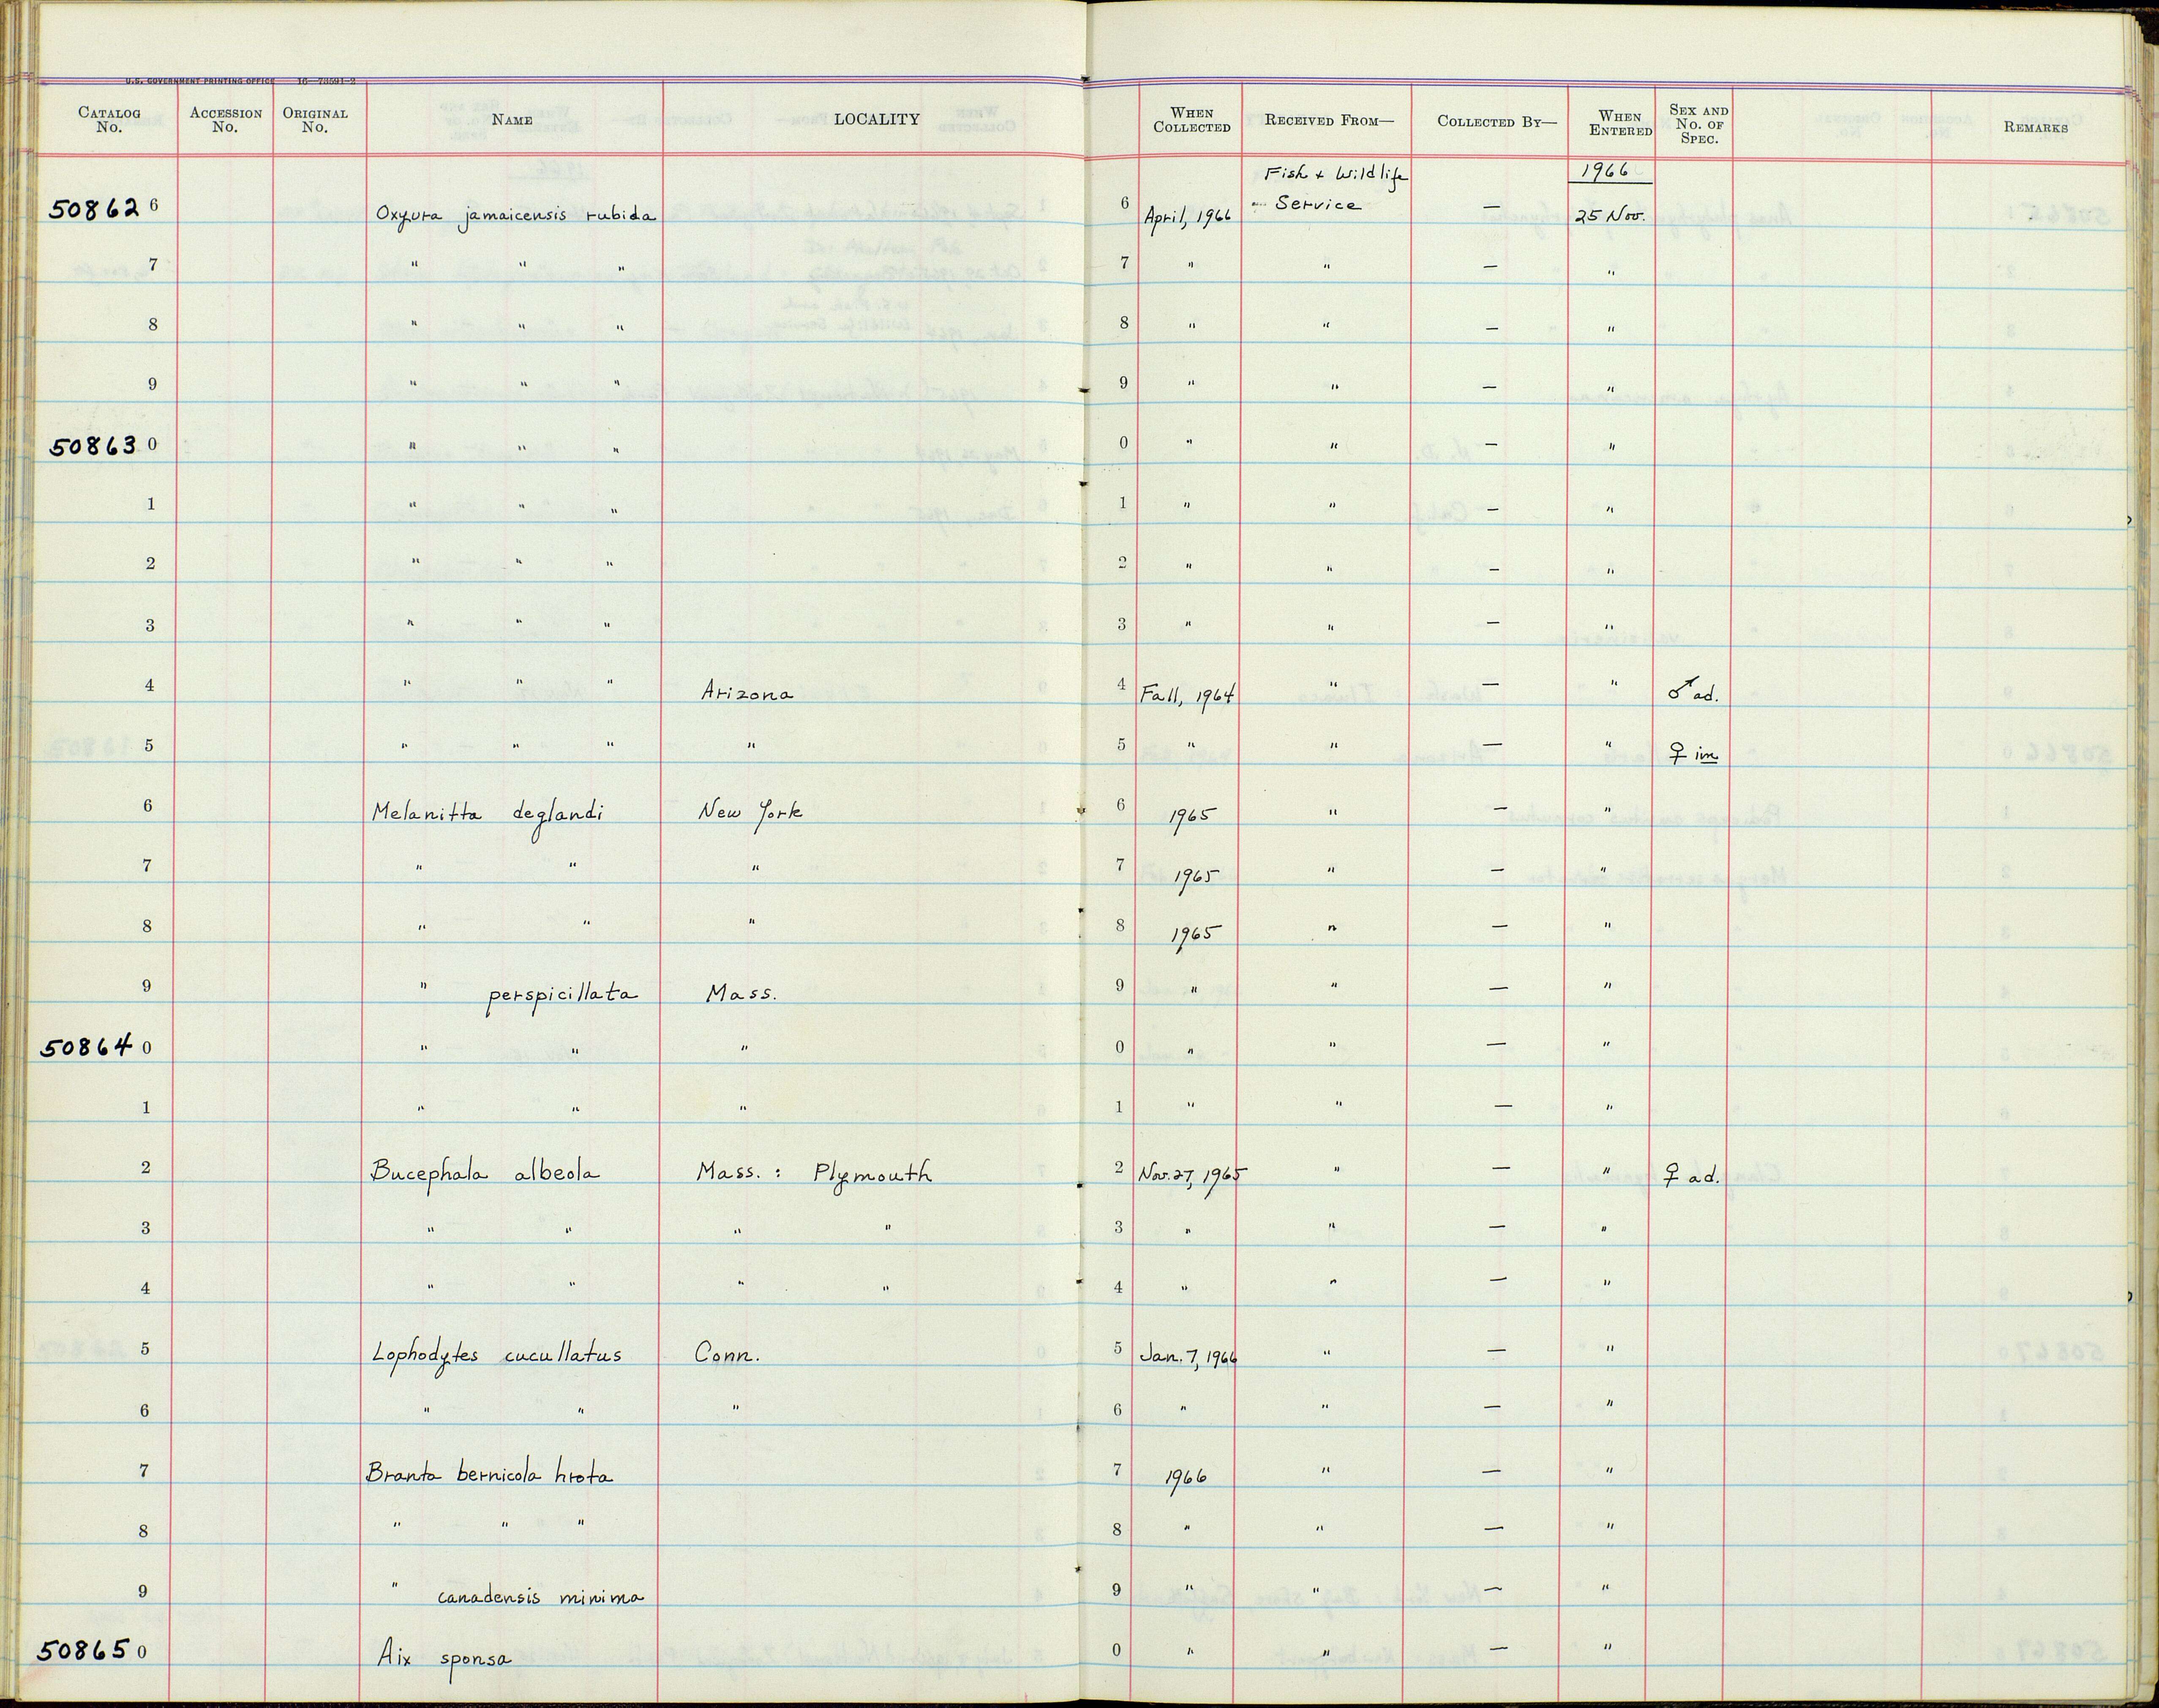 U.S. GOVERNMENT PRINTING OFFICE 16—73591-2
CATALOG No. ACCESSION No. ORIGINAL No. NAME LOCALITY WHEN COLLECTED RECEIVED FROM— COLLECTED BY— WHEN ENTERED SEX AND No. OF SPEC. REMARKS
Fish & Wildlife 1966
50862 6 Oxyura jamaicensis rubida 6 April, 1966 Service — 25 Nov.
7 " " " 7 " " — "
8 " " " 8 " " — "
9 " " " 9 " " — "
50863 0 " " " 0 " " — "
1 " " " 1 " " — "
2 " " " 2 " " — "
3 " " " 3 " " — "
4 " " " Arizona 4 Fall, 1964 " — " ♂ ad.
5 " " " " 5 " " — " ♀ im
6 Melanitta deglandi New York 6 1965 " — "
7 " " " 7 1965 " — "
8 " " " 8 1965 " — "
9 " perspicillata Mass. 9 " " — "
50864 0 " " " 0 " " — "
1 " " " 1 " " — "
2 Bucephala albeola Mass. : Plymouth 2 Nov. 27, 1965 " — " ♀ ad.
3 " " " " 3 " " — "
4 " " " " 4 " " — "
5 Lophodytes cucullatus Conn. 5 Jan. 7, 1966 " — "
6 " " " 6 " " — "
7 Branta bernicola hrota 7 1966 " — "
8 " " " 8 " " — "
9 " canadensis minima 9 " " — "
50865 0 Aix sponsa 0 " " — "